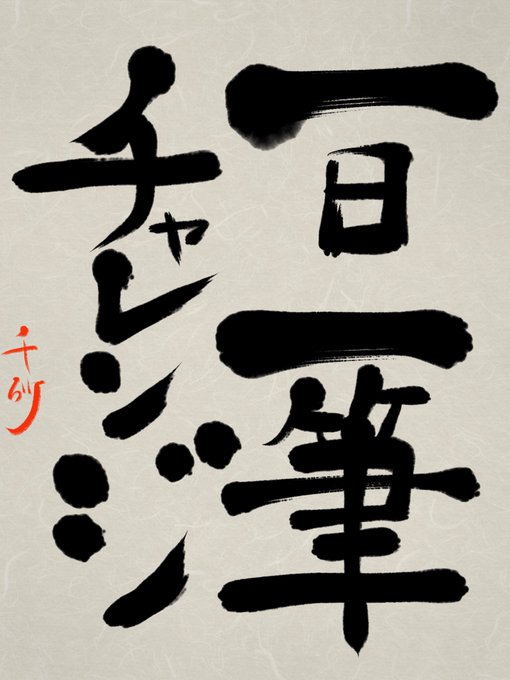 一日一筆
チャレンジ